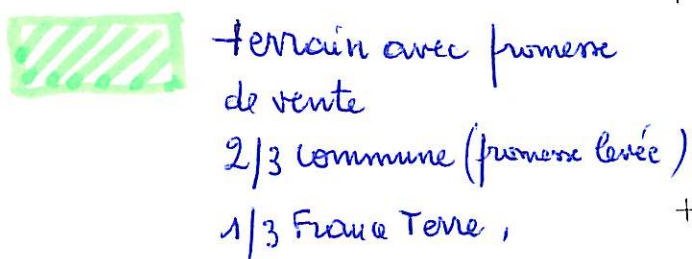 terrain avec promesse
de vente
2/3 commune (promesse levée)
1/3 France Terre,